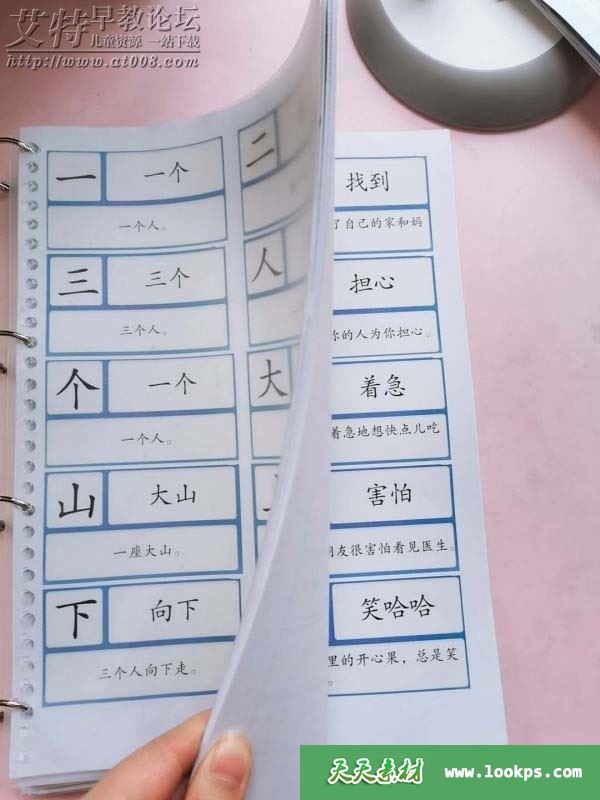 艾特早教论坛
儿童资源 一站下载
http://www.at008.com
一 一个
一个人。
三 三个
三个人。
个 一个
一个人。
山 大山
一座大山。
下 向下
三个人向下走。
二
人
大
找到
了自己的家和妈
担心
你的人为你担心。
着急
着急地想快点儿吃
害怕
朋友很害怕看见医生。
笑哈哈
里的开心果，总是笑
。
天天素材 www.lookps.com